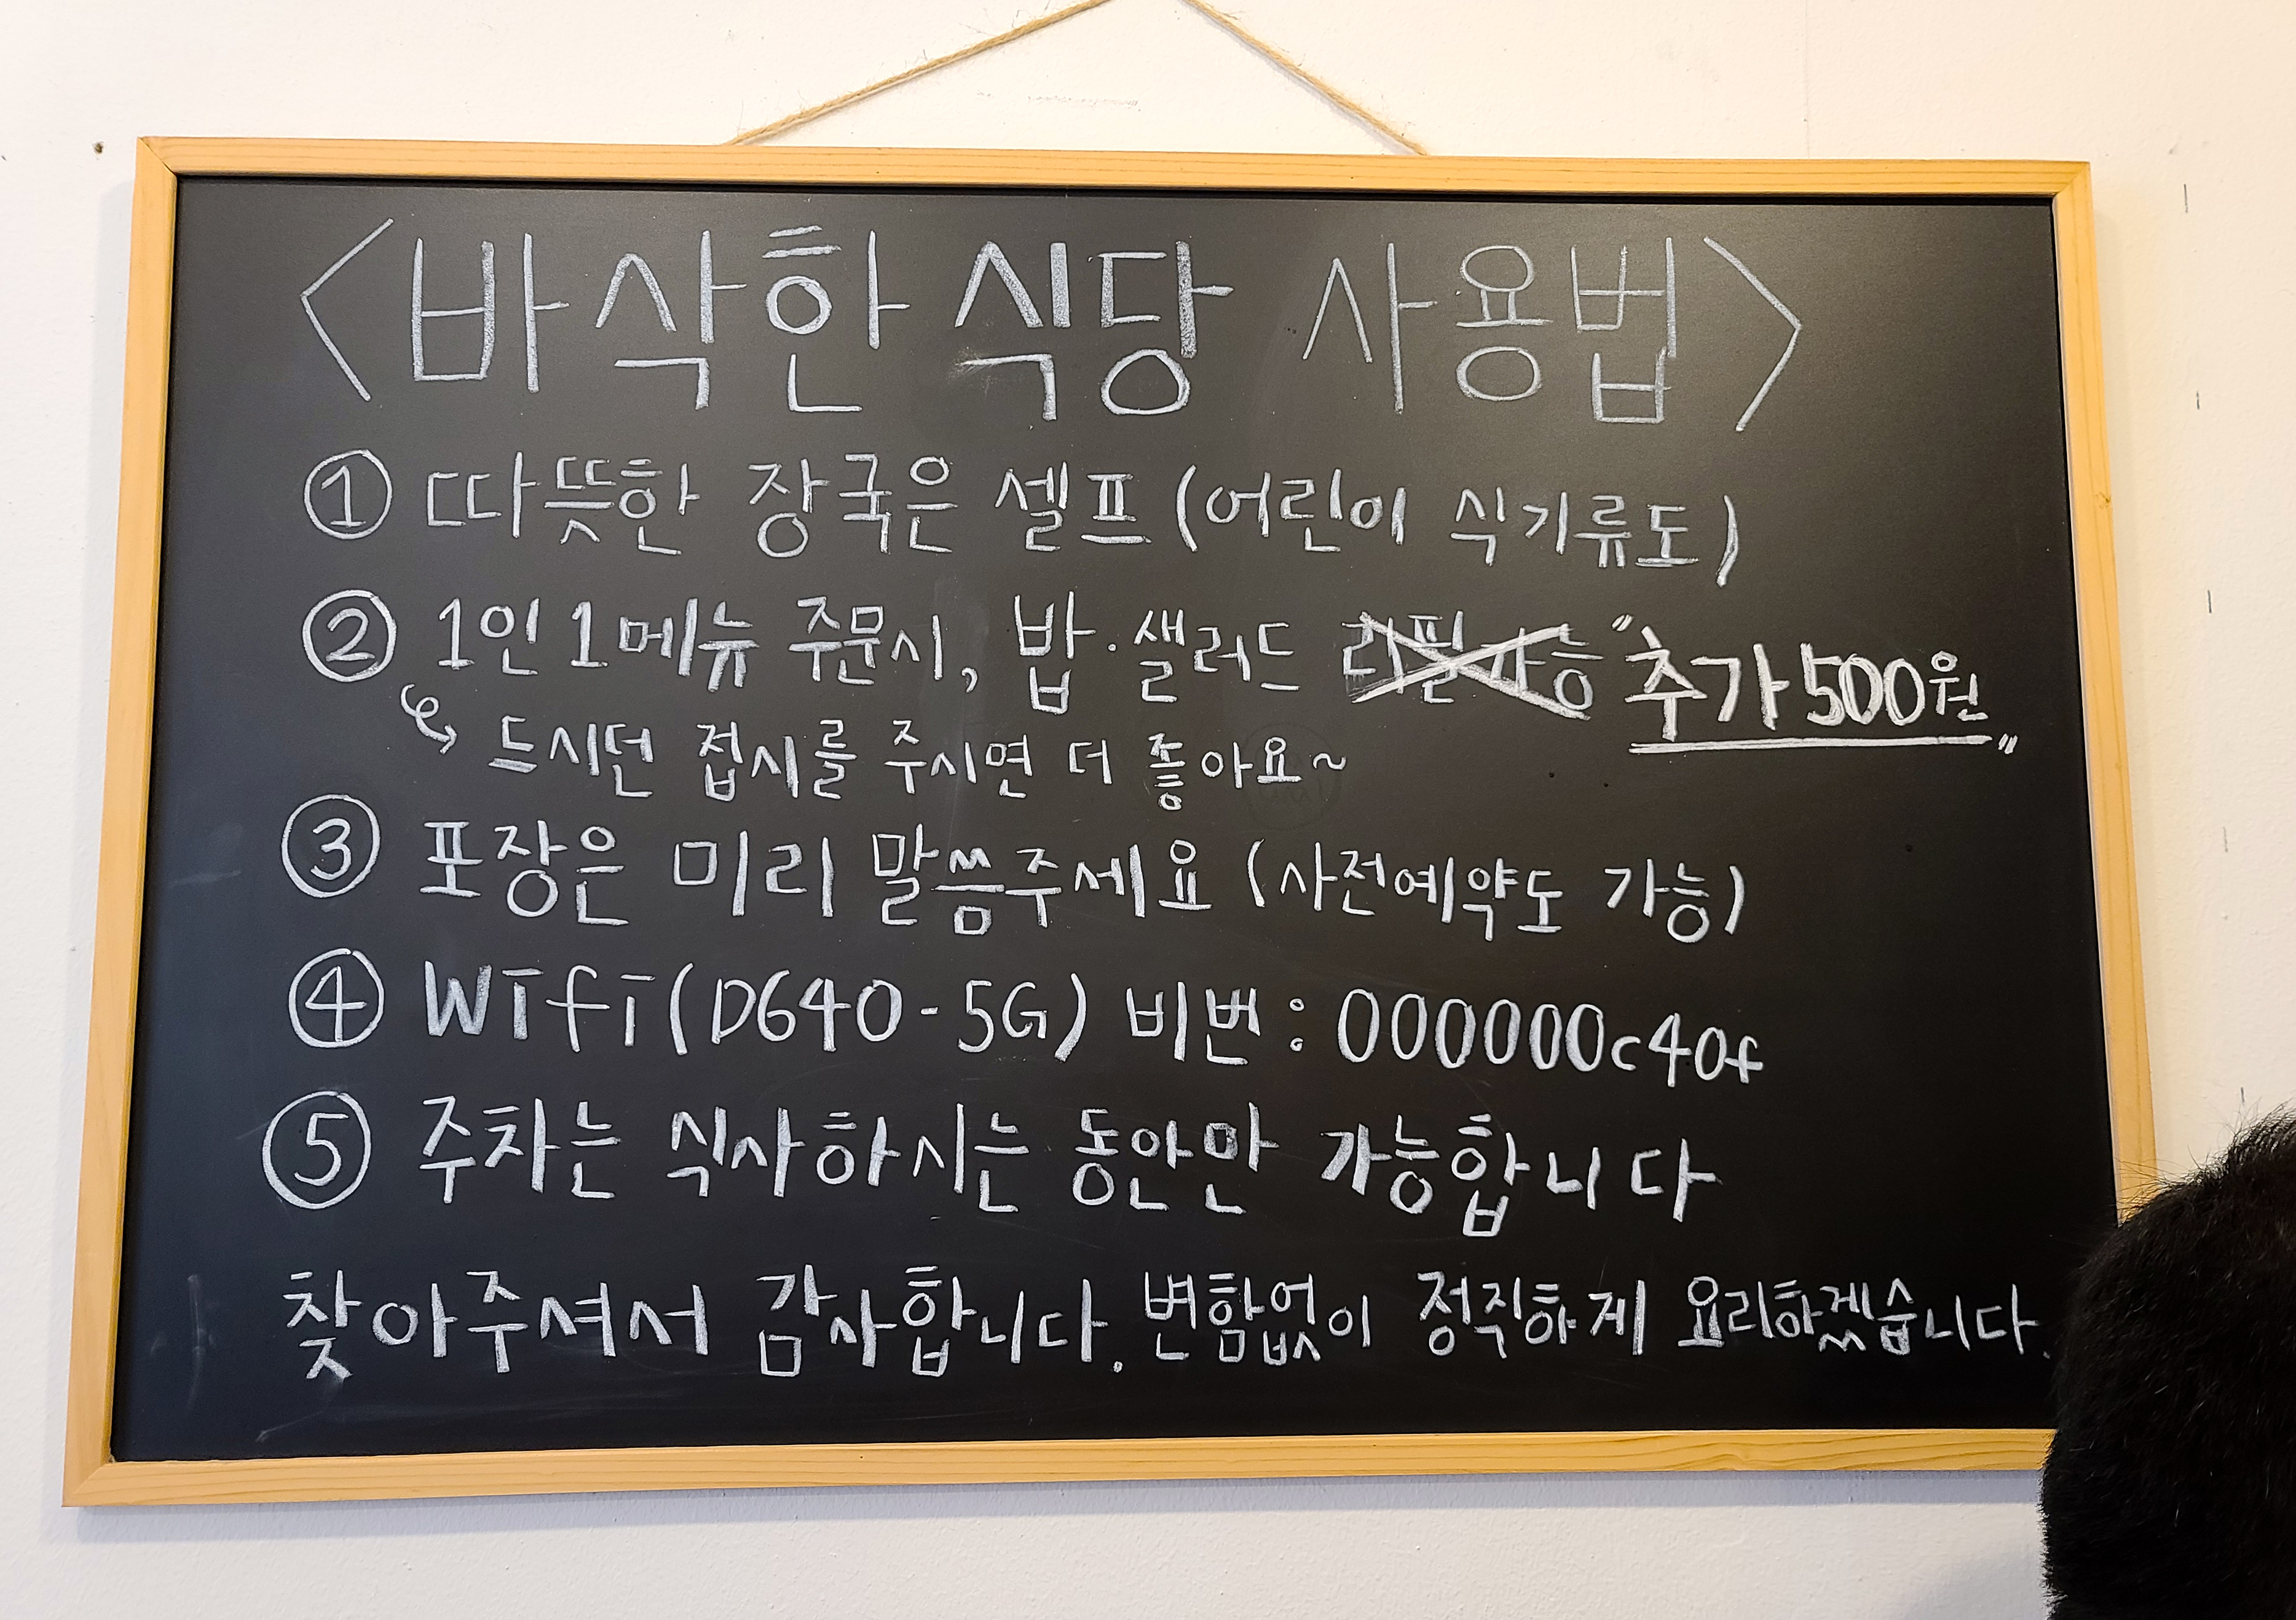 <바삭한 식당 사용법>
① 따뜻한 장국은 셀프 (어린이 식기류도)
② 1인 1메뉴 주문시, 밥·샐러드 리필가능 "추가 500원"
드시던 접시를 주시면 더 좋아요~
③ 포장은 미리 말씀주세요 (사전예약도 가능)
④ Wifi (D640-5G) 비번 : 000000c40f
⑤ 주차는 식사하시는 동안만 가능합니다
찾아주셔서 감사합니다. 변함없이 정직하게 요리하겠습니다.